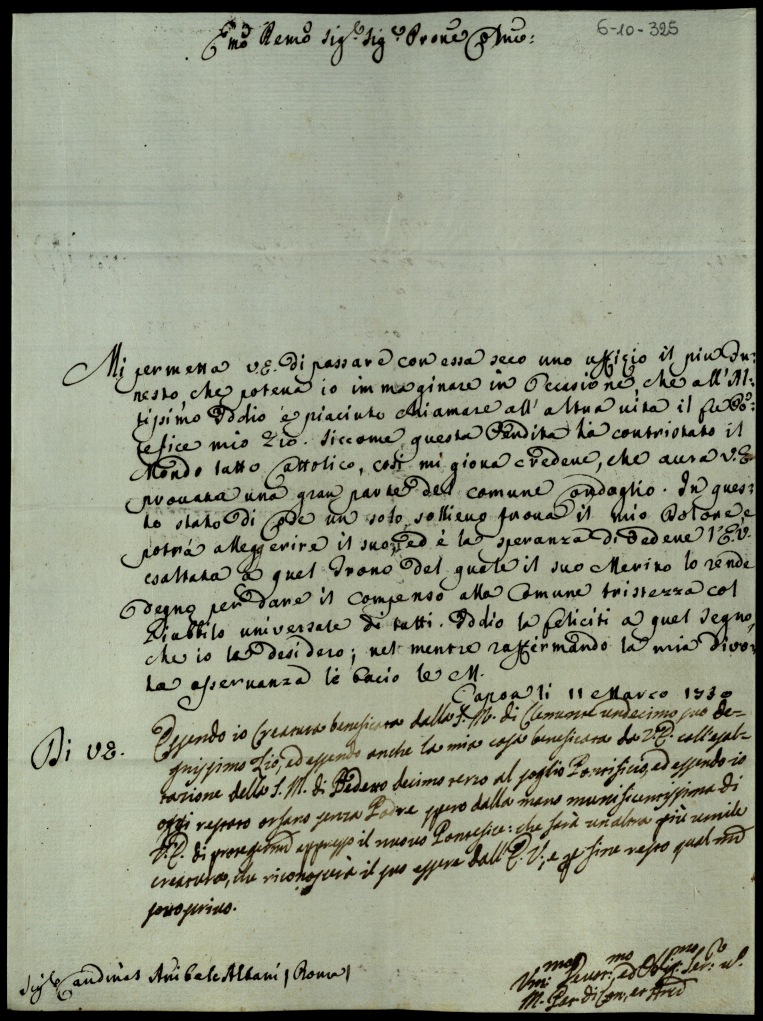 6-10-325
Emo Remo Sig.e Sig.e Prone Cpmo:
Mi permetta V.E. di passare con essa seco uno uffizio il piu fu:
nesto, che poteva io immaginare in occasione, che all'Al:
tissimo Iddio è piaciuto chiamare all'altra vita il fu Po:
tefice mio Zio. Siccome questa Perdita hà contristato il
Mondo tutto Cattolico, così mi giova credere, che avrà V.E.
provata una gran parte del comune cordoglio. In ques:
to stato di cose un solo sollievo trova il mio Dolore, e
potrà alleggerire il suo, ed è la speranza di vedere l'E.V.
esaltata à quel Trono del quale il suo Merito lo rende
degno per dare il compenso alla Comune tristezza col
Giubbilo universale di tutti. Iddio la feliciti a quel segno,
che io la desidero; nel mentre raffermando la mia divo:
ta osservanza le bacio le M.
Capoa li 11 Marzo 1730
Di V.E.
Essendo io Creatura beneficata dalla S. M. di Clemente undecimo suo de-
gnissimo Zio, ed essendo anche la mia casa beneficata da V.E. coll'esal-
tazione della S. M. di Bedetto decimo terzo al soglio Pontificio, ed essendo io
oggi restato orfano senza Padre spero dalla mano munificentissima di
V.E. di proteggermi appresso il nuovo Pontefice: che sarà un'altra più umile
creatura, che riconoscerà il suo essere dall'E.V., e per fine resto qual mi
sottoscrivo.
Sig.e Cardinal Anibale Albani (Roma)
Umo Devmo ed Oblmo Ser.e
M.